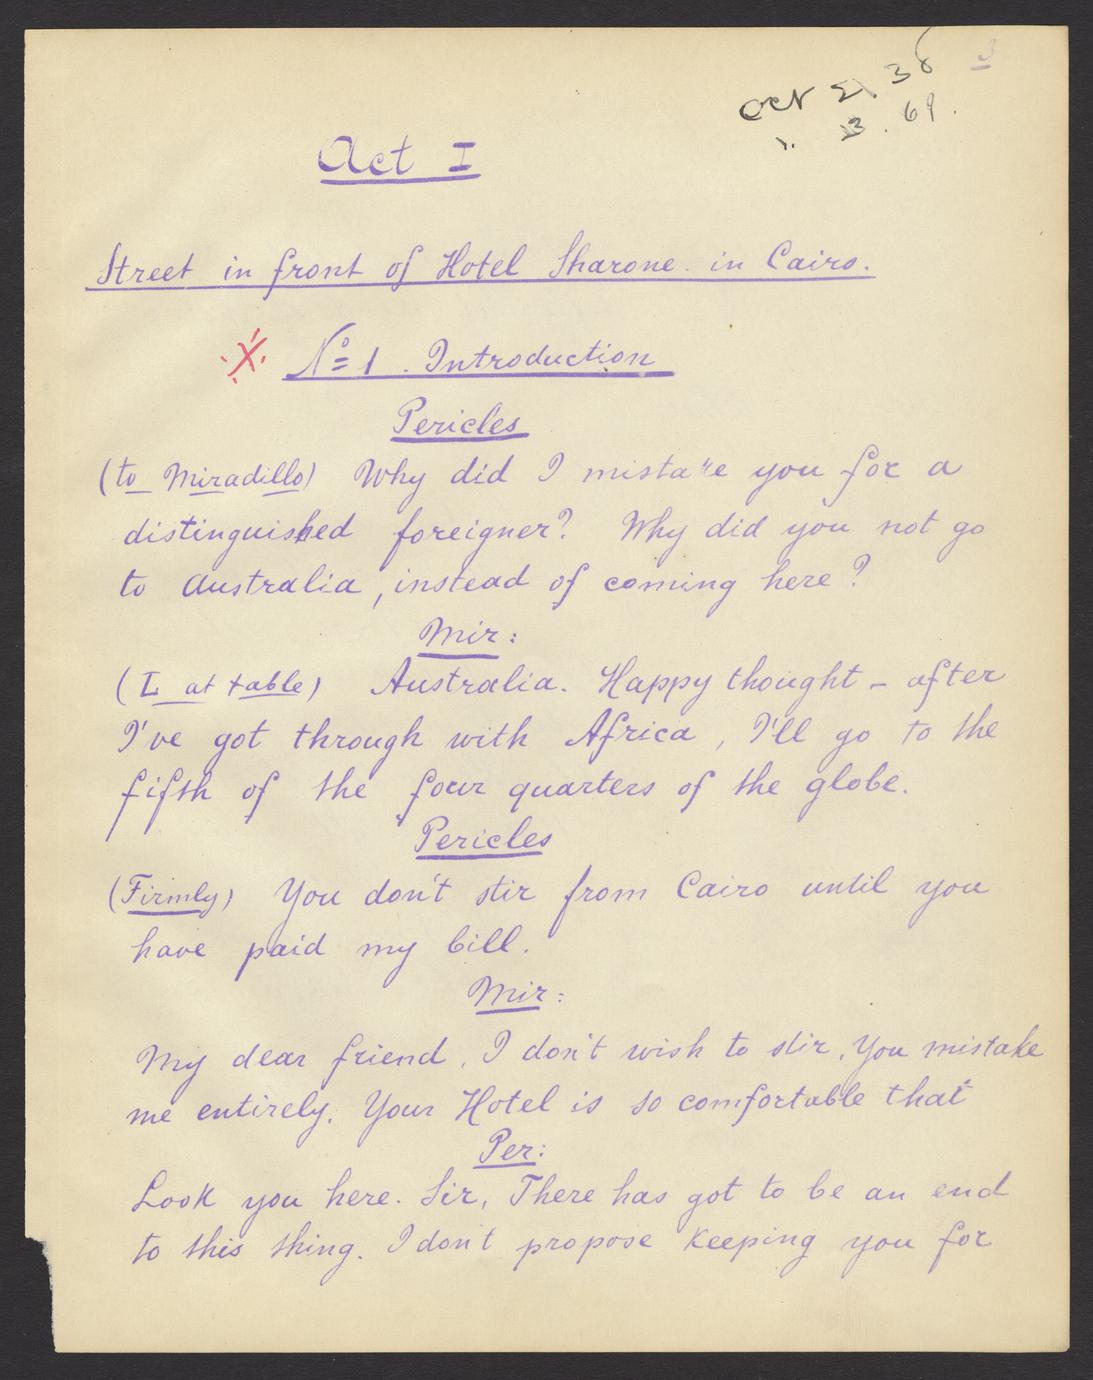 3
Oct 21. 36
1. 13. 69.
Act I
Street in front of Hotel Sharone. in Cairo.
No= 1. Introduction
Pericles
(to Miradillo) Why did I mistake you for a
distinguished foreigner? Why did you not go
to Australia, instead of coming here?
Mir:
(L at table) Australia. Happy thought - after
I've got through with Africa, I'll go to the
fifth of the four quarters of the globe.
Pericles
(Firmly) You don't stir from Cairo until you
have paid my bill.
Mir:
My dear friend, I don't wish to stir, You mistake
me entirely. Your Hotel is so comfortable that
Per:
Look you here. Sir, There has got to be an end
to this thing. I don't propose keeping you for